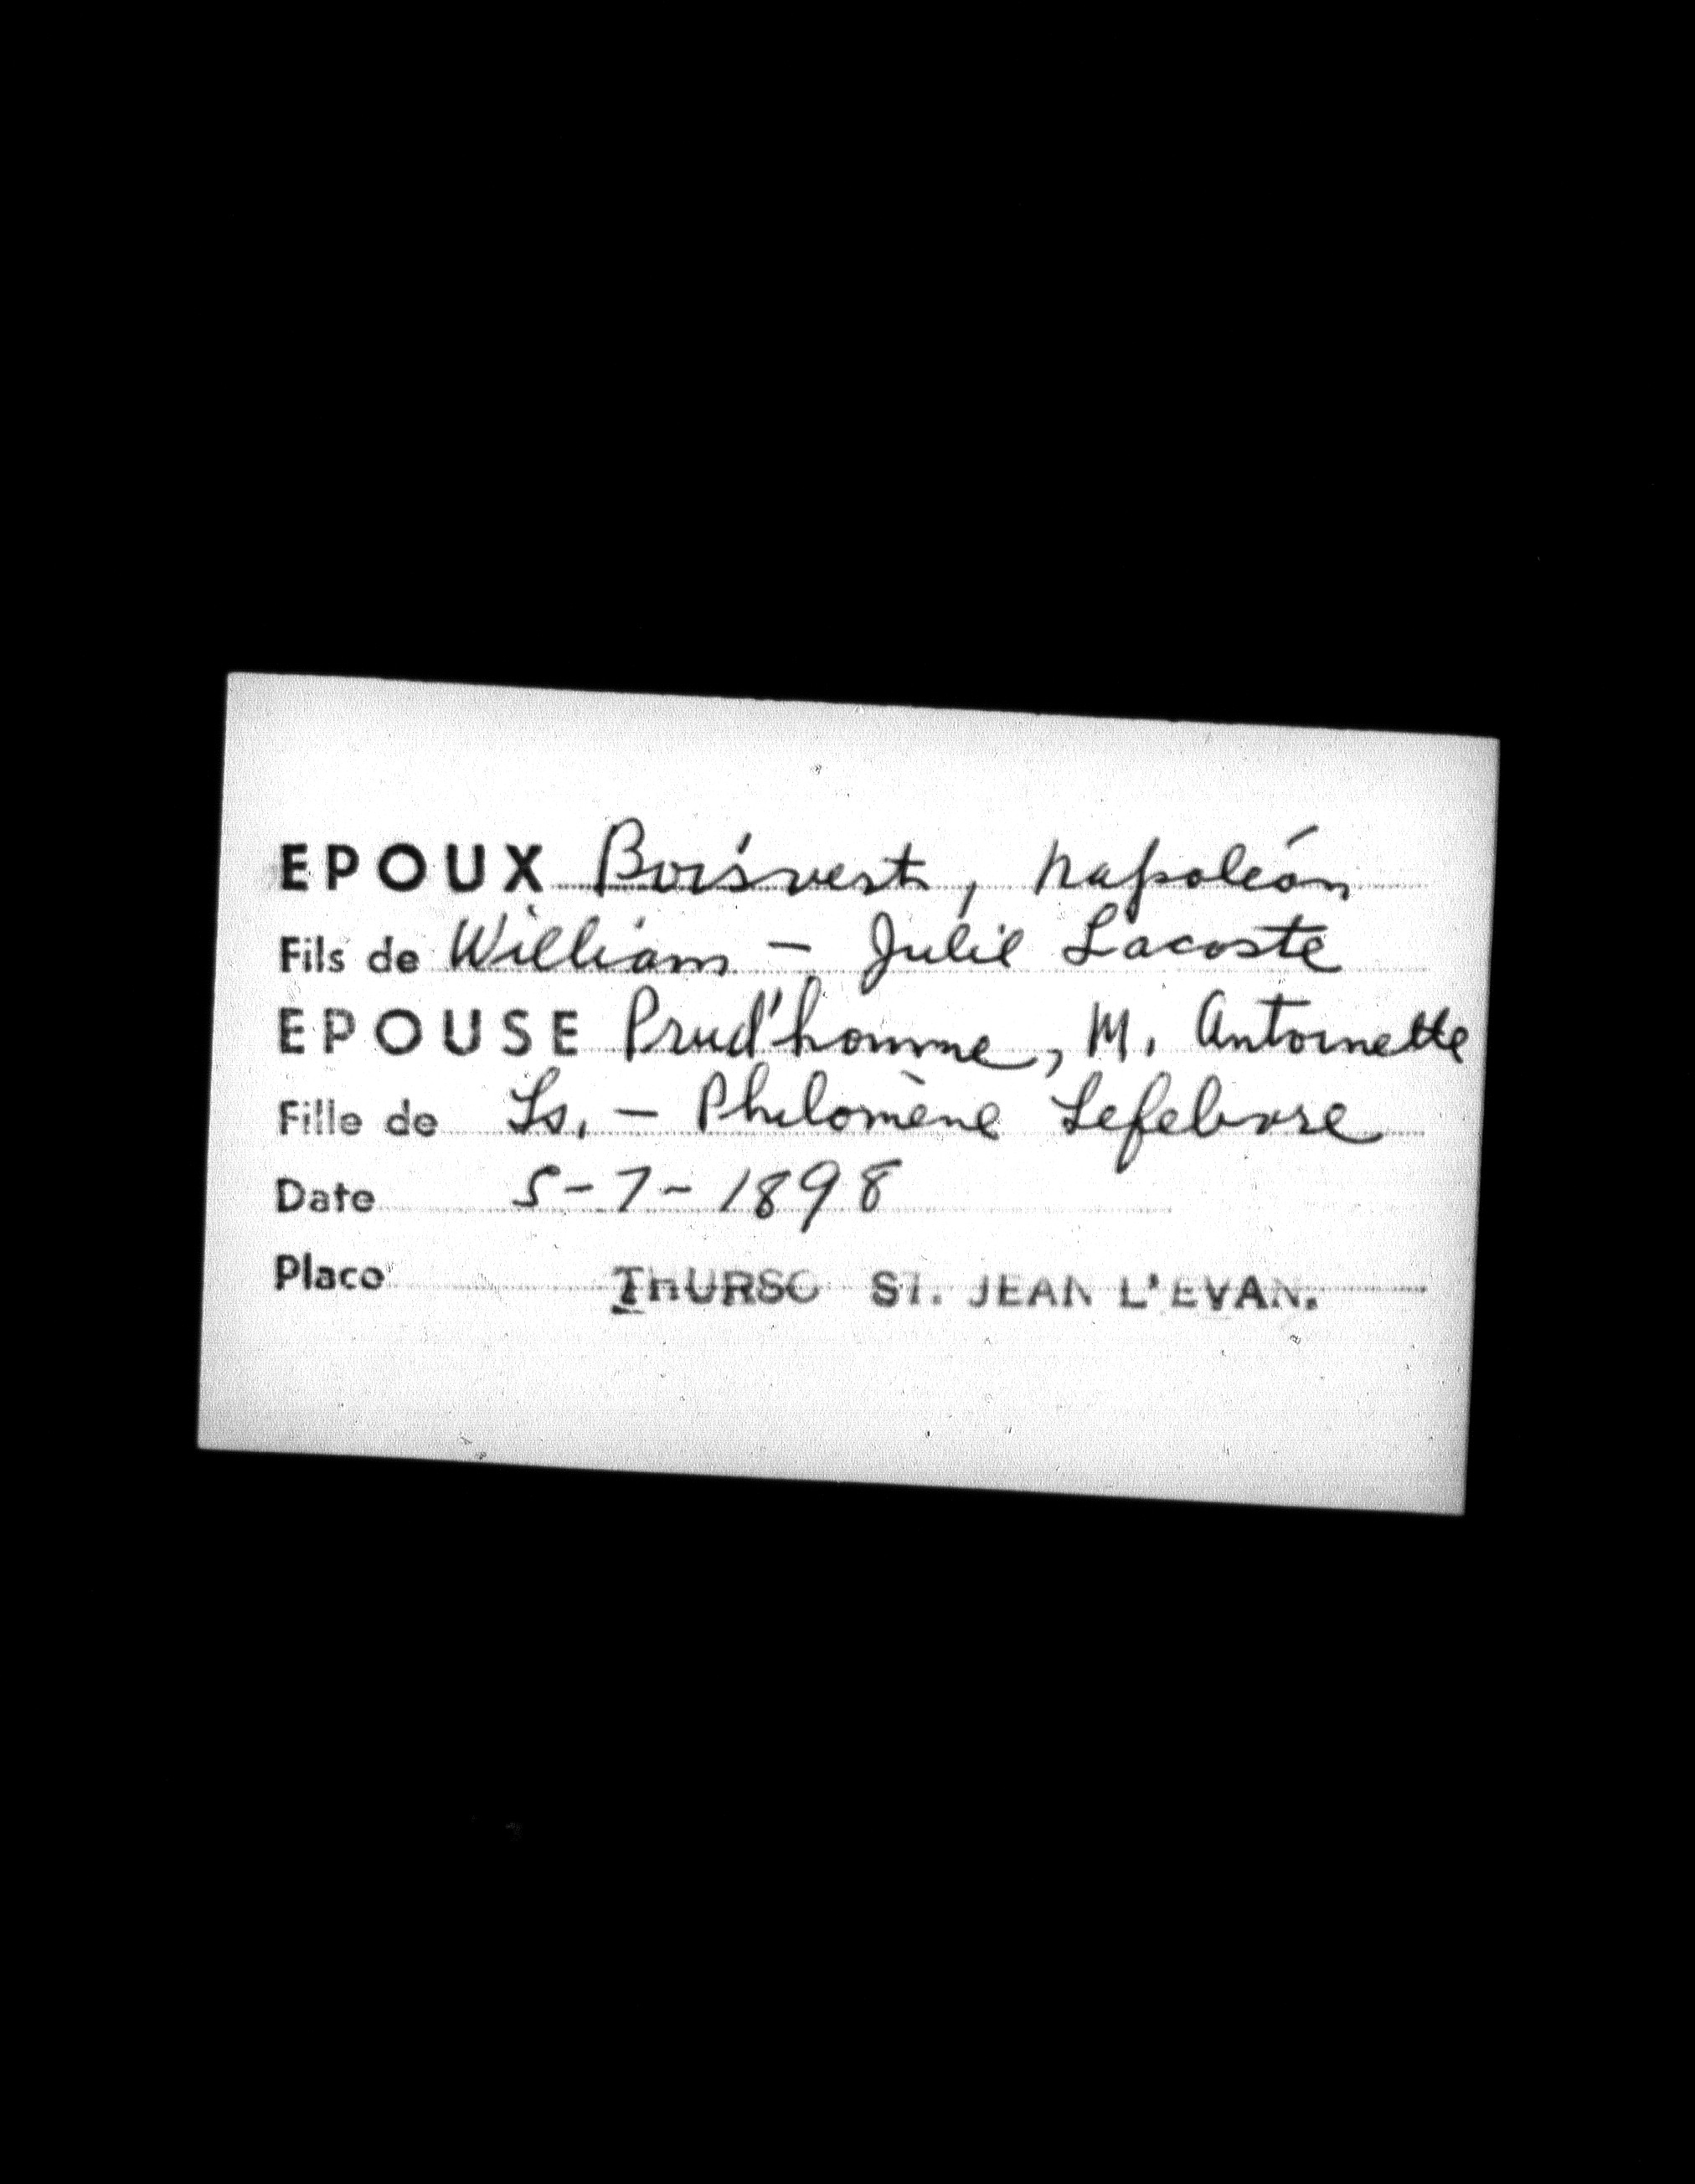 EPOUX Boisvert, Napoléon
Fils de William - Julie Lacoste
EPOUSE Prud'homme, M. Antoinette
Fille de Ls. - Philomène Lefebvre
Date 5-7-1898
Place THURSO ST. JEAN L'EVAN.